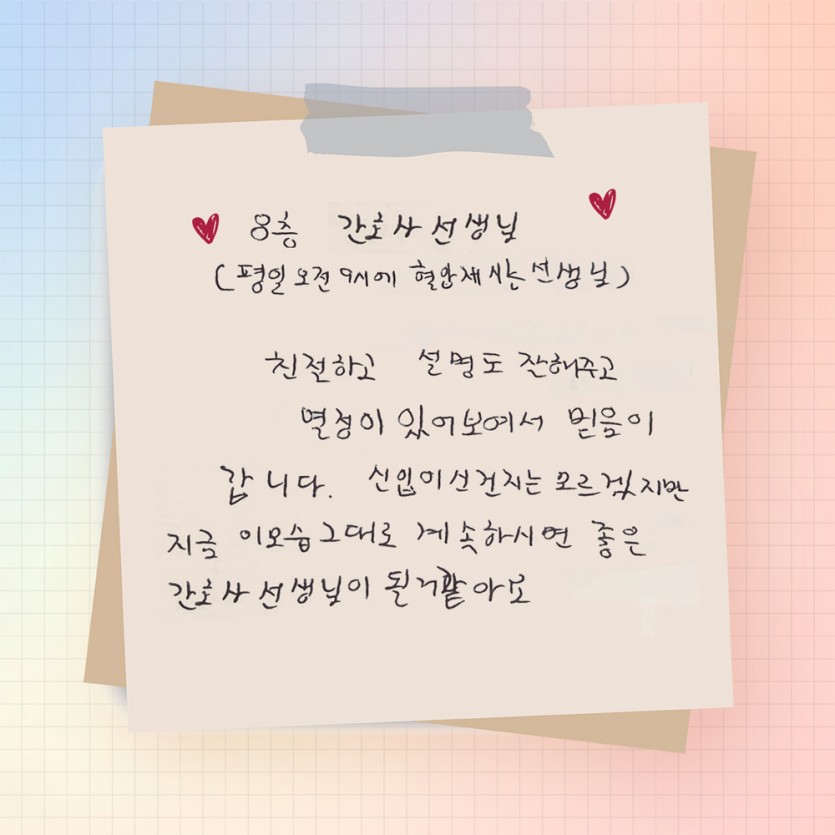 8층 간호사선생님
(평일오전9시에 혈압재시는선생님)
친절하고 설명도 잔해주고
열정이 있어보여서 믿음이
갑니다. 신입이신건지는 모르겠지만
지금 이모습그대로 계속하시면 좋은
간호사선생님이 될거같아보